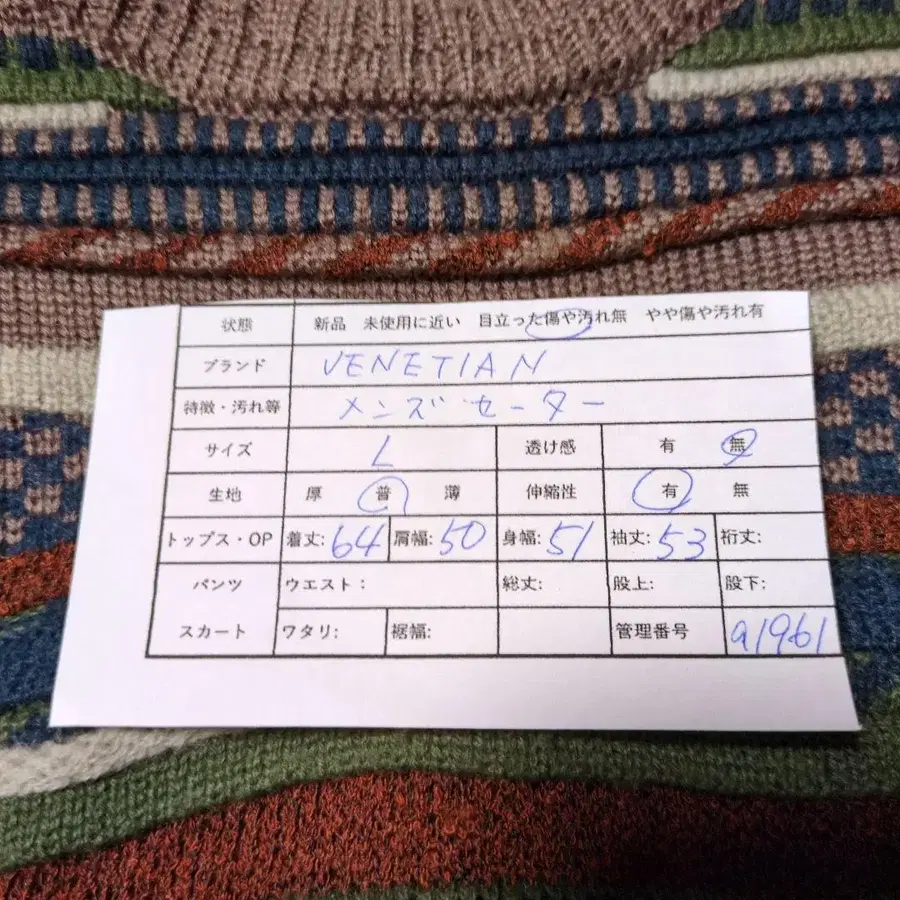 状態 新品 未使用に近い 目立った傷や汚れ無 やや傷や汚れ有
ブランド VENETIAN
特徴・汚れ等 メンズセーター
サイズ L 透け感 有 無
生地 厚 普 薄 伸縮性 有 無
トップス・OP 着丈:64 肩幅:50 身幅:51 袖丈:53 裄丈:
パンツ ウエスト: 総丈: 股上: 股下:
スカート ワタリ: 裾幅: 管理番号 a1961